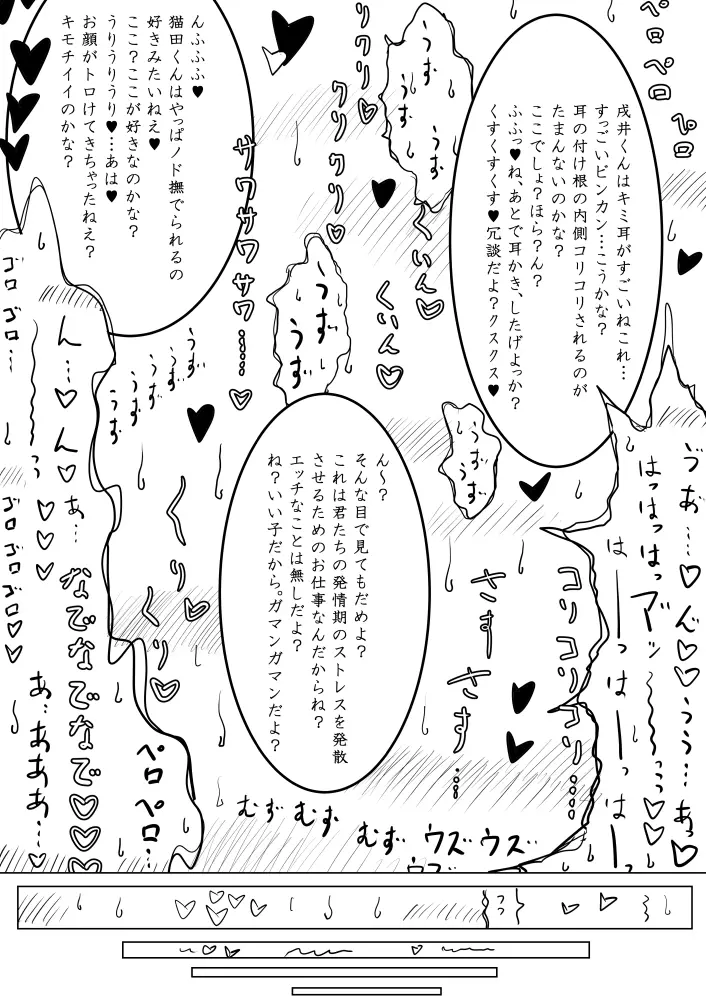 戌井くんはキミ耳がすごいねこれ…
すっごいビンカン…こうかな？
耳の付け根の内側コリコリされるのが
たまんないのかな？
ここでしょ？ほら？ん？
ふふっ♥ね、あとで耳かき、したげよっか？
くすくすくす♥冗談だよ？クスクス♥
んふふふ♥
猫田くんはやっぱノド撫でられるの
好きみたいねえ♥
ここ？ここが好きなのかな？
うりうりうり♥…あは♥
お顔がトロけてきちゃったねえ？
キモチイイのかな？
ん～？
そんな目で見てもだめよ？
これは君たちの発情期のストレスを発散
させるためのお仕事なんだからね？
エッチなことは無しだよ？
ね？いい子だから。ガマンガマンだよ？
ペロペロ
ペロ
リクリ♡
クリクリ♡
うずうずうず
くいん♡
くいん♡
サワサワサワサワ…♡
うずうずうず
うずうず
うずうずうずうず
ゴロゴロ…
ん…♡ん♡
あ…
ゴロゴロゴロ♡♡
くりくり♡
なでなでなでなで♡♡♡
あ…あああ…♡
ペロペロ…
さすさす…
コリコリコリ…
はっはっはっ
はーーっはーーっはーー
うう…あっ♡
むずむずむず
ウズウズ
ウズ